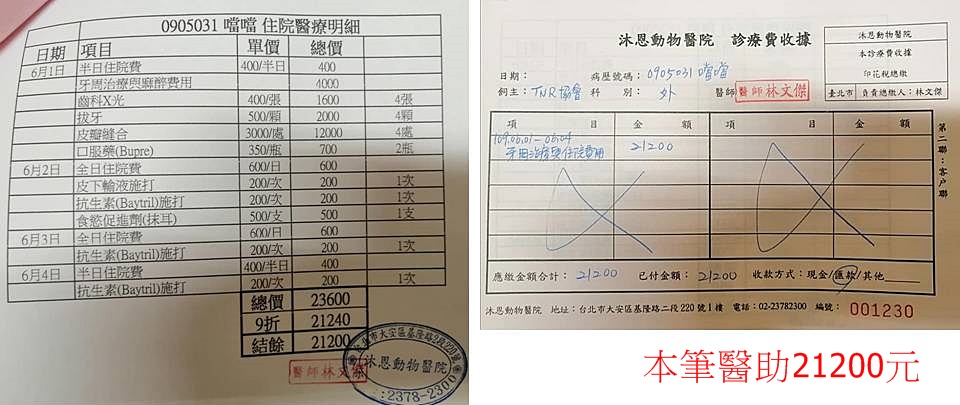 0905031 噹噹 住院醫療明細
日期 項目 單價 總價
6月1日 半日住院費 400/半日 400
牙周治療與麻醉費用 4000
齒科X光 400/張 1600 4張
拔牙 500/顆 2000 4顆
皮瓣縫合 3000/處 12000 4處
口服藥(Bupre) 350/瓶 700 2瓶
6月2日 全日住院費 600/日 600
皮下輸液施打 200/次 200 1次
抗生素(Baytril)施打 200/次 200 1次
食慾促進劑(抹耳) 500/支 500 1支
6月3日 全日住院費 600/日 600
抗生素(Baytril)施打 200/次 200 1次
6月4日 半日住院費 400/半日 400
抗生素(Baytril)施打 200/次 200 1次
總價 23600
9折 21240
結餘 21200
醫師林文傑
台北市大安區基隆路2段220號
沐恩動物醫院
:2378-2300
沐恩動物醫院 診療費收據
沐恩動物醫院
本診療費收據
印花稅總繳
臺北市 負責總繳人：林文傑
日期： 病歷號碼：0905031 噹噹
飼主：TNR協會 科 別：外 醫師 醫師林文傑
項 目 金 額 項 目 金 額
109.06.01-06.04
牙周治療與住院費用 21200
第二聯：客戶聯
應繳金額合計：21200 已付金額：21200 收款方式：現金/匯款/其他
沐恩動物醫院 地址：台北市大安區基隆路二段220號1樓 電話：02-23782300 編號：001230
本筆醫助21200元